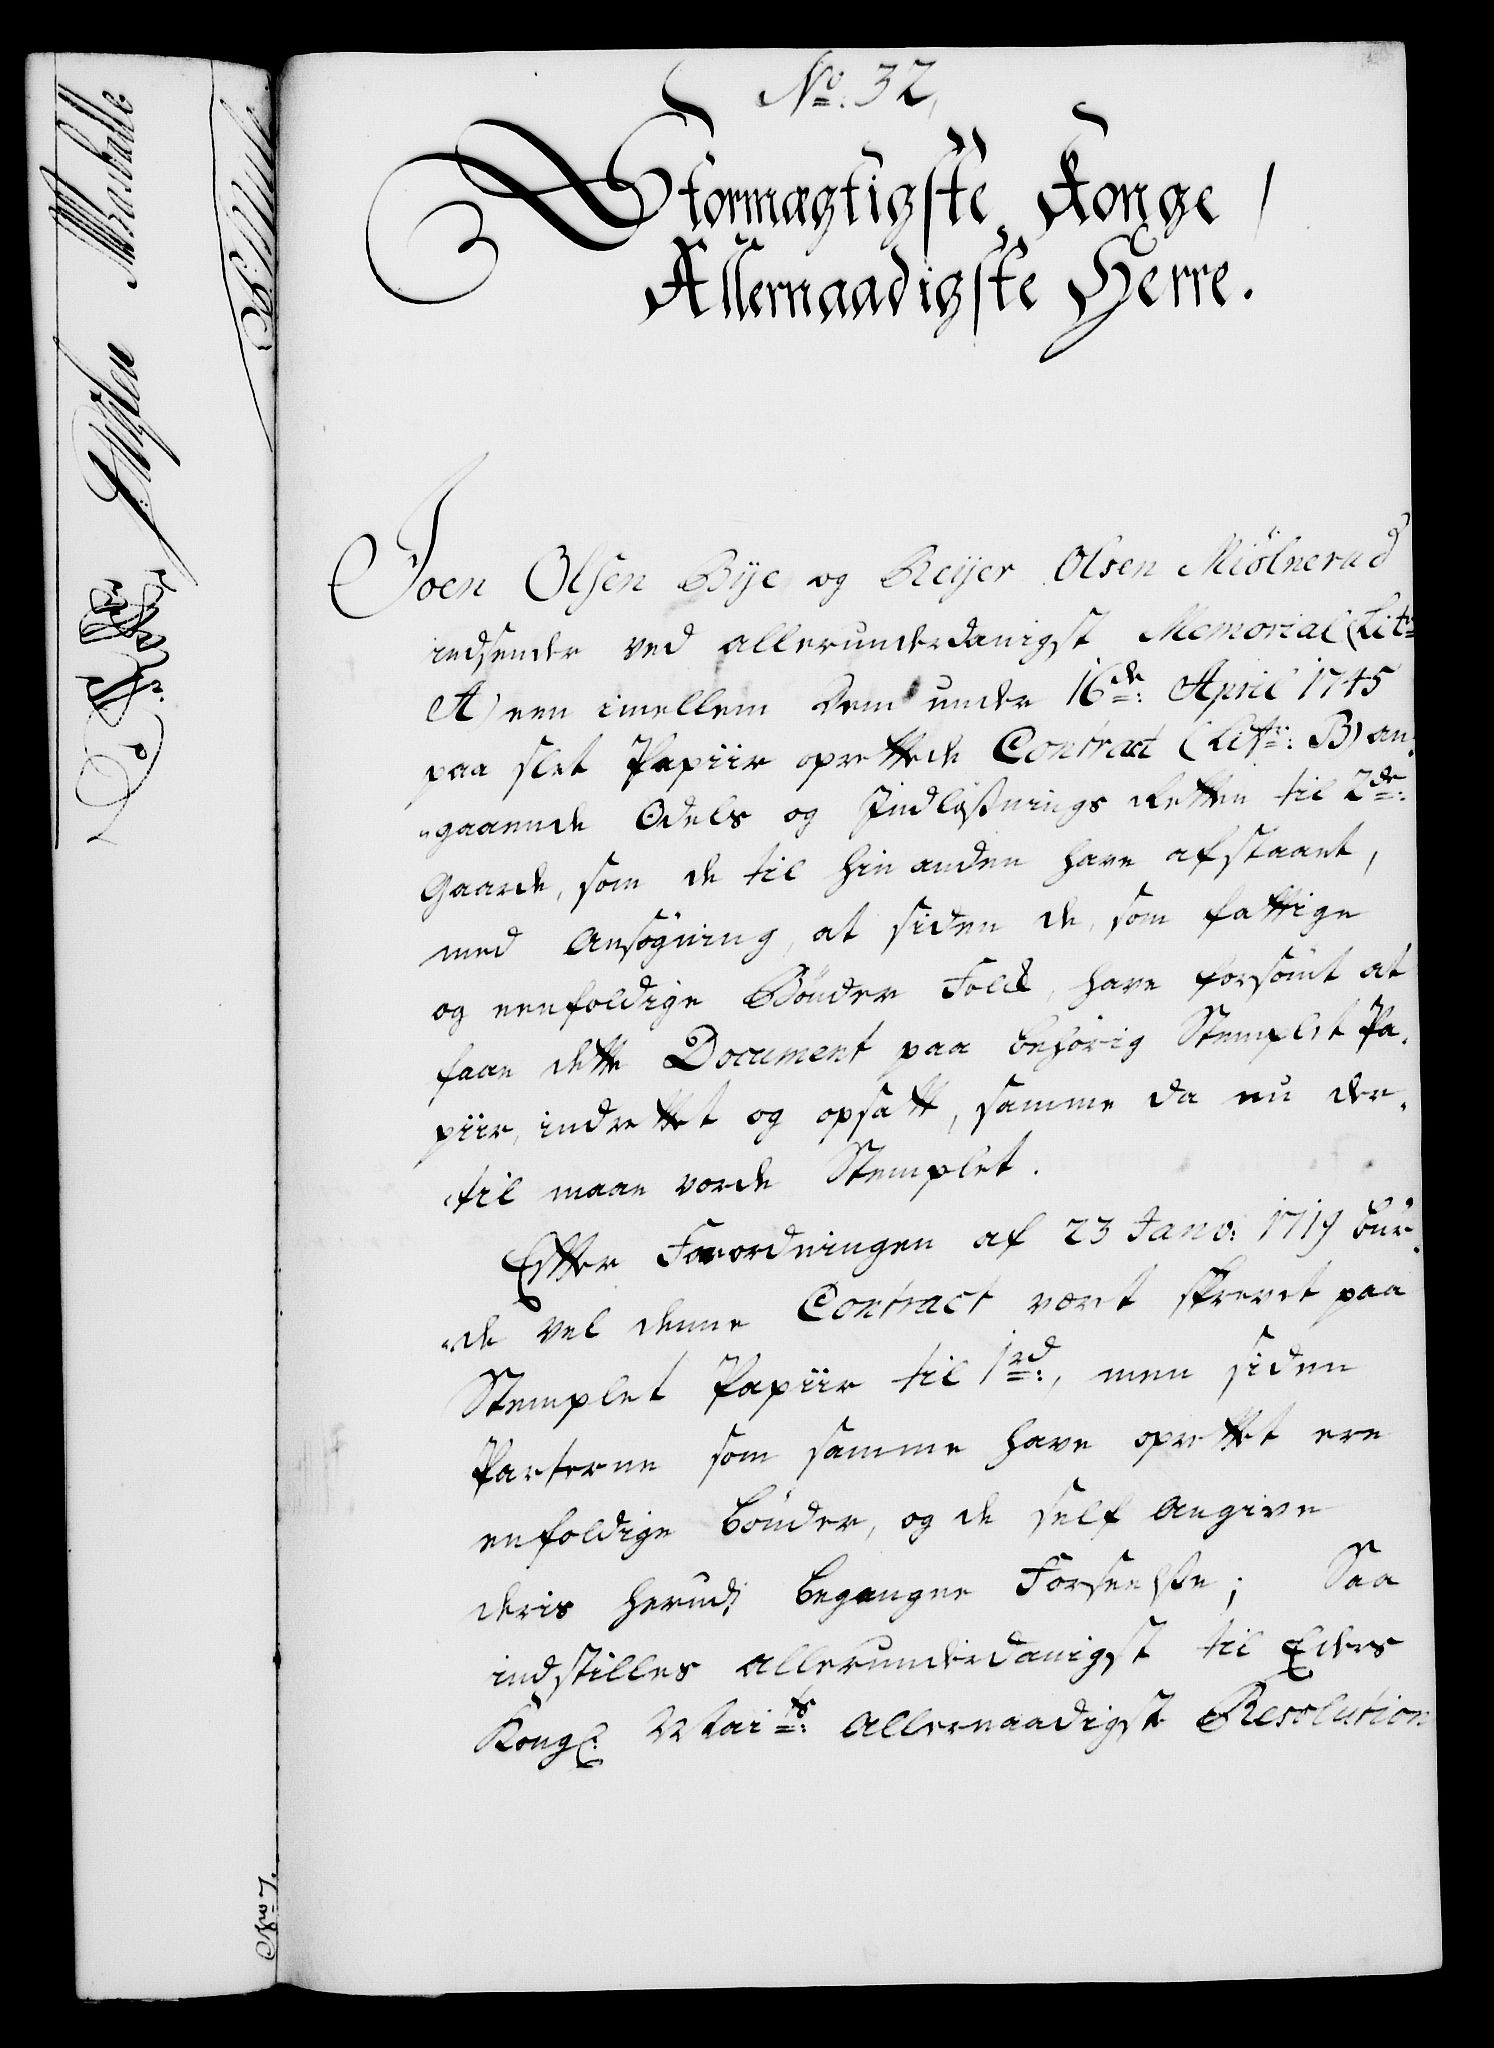 No. 32,
Stormagtigste Konge /
Allernaadigste Herre.
Joen Olsen Bije og Reijer Olsen Miölnerud
indsender ved allerunderdanigst Memorial (Litr:
A) een imellem dem under 16de: April 1745
paa slet Papiir oprettede Contract (Litr: B) an-
gaaende Odels og Indlößnings Retten til 2de:
Gaarde, som de til hin anden have afstaaet,
med Ansögning, at siden de, som fattige
og eenfoldige Bönder Folck, have forsömt at
faae dette Document paa behörig Stemplet Pa-
piir, indrettet og opsatt, samme da nu der-
til maae vorde Stemplet.
Effter Forordningen af 23 Janv: 1719 bur-
de vel denne Contract vært skrevet paa
Stemplet Papiir til 1rd:, men siden
Parterne som samme have oprettet ere
enfoldige bönder, og de self angive
deris herudi begangne Forseelse; Saa
indstilles allerunderdanigst til Eders
Kongl: Maits: allernaadigste Resolution
No 7.